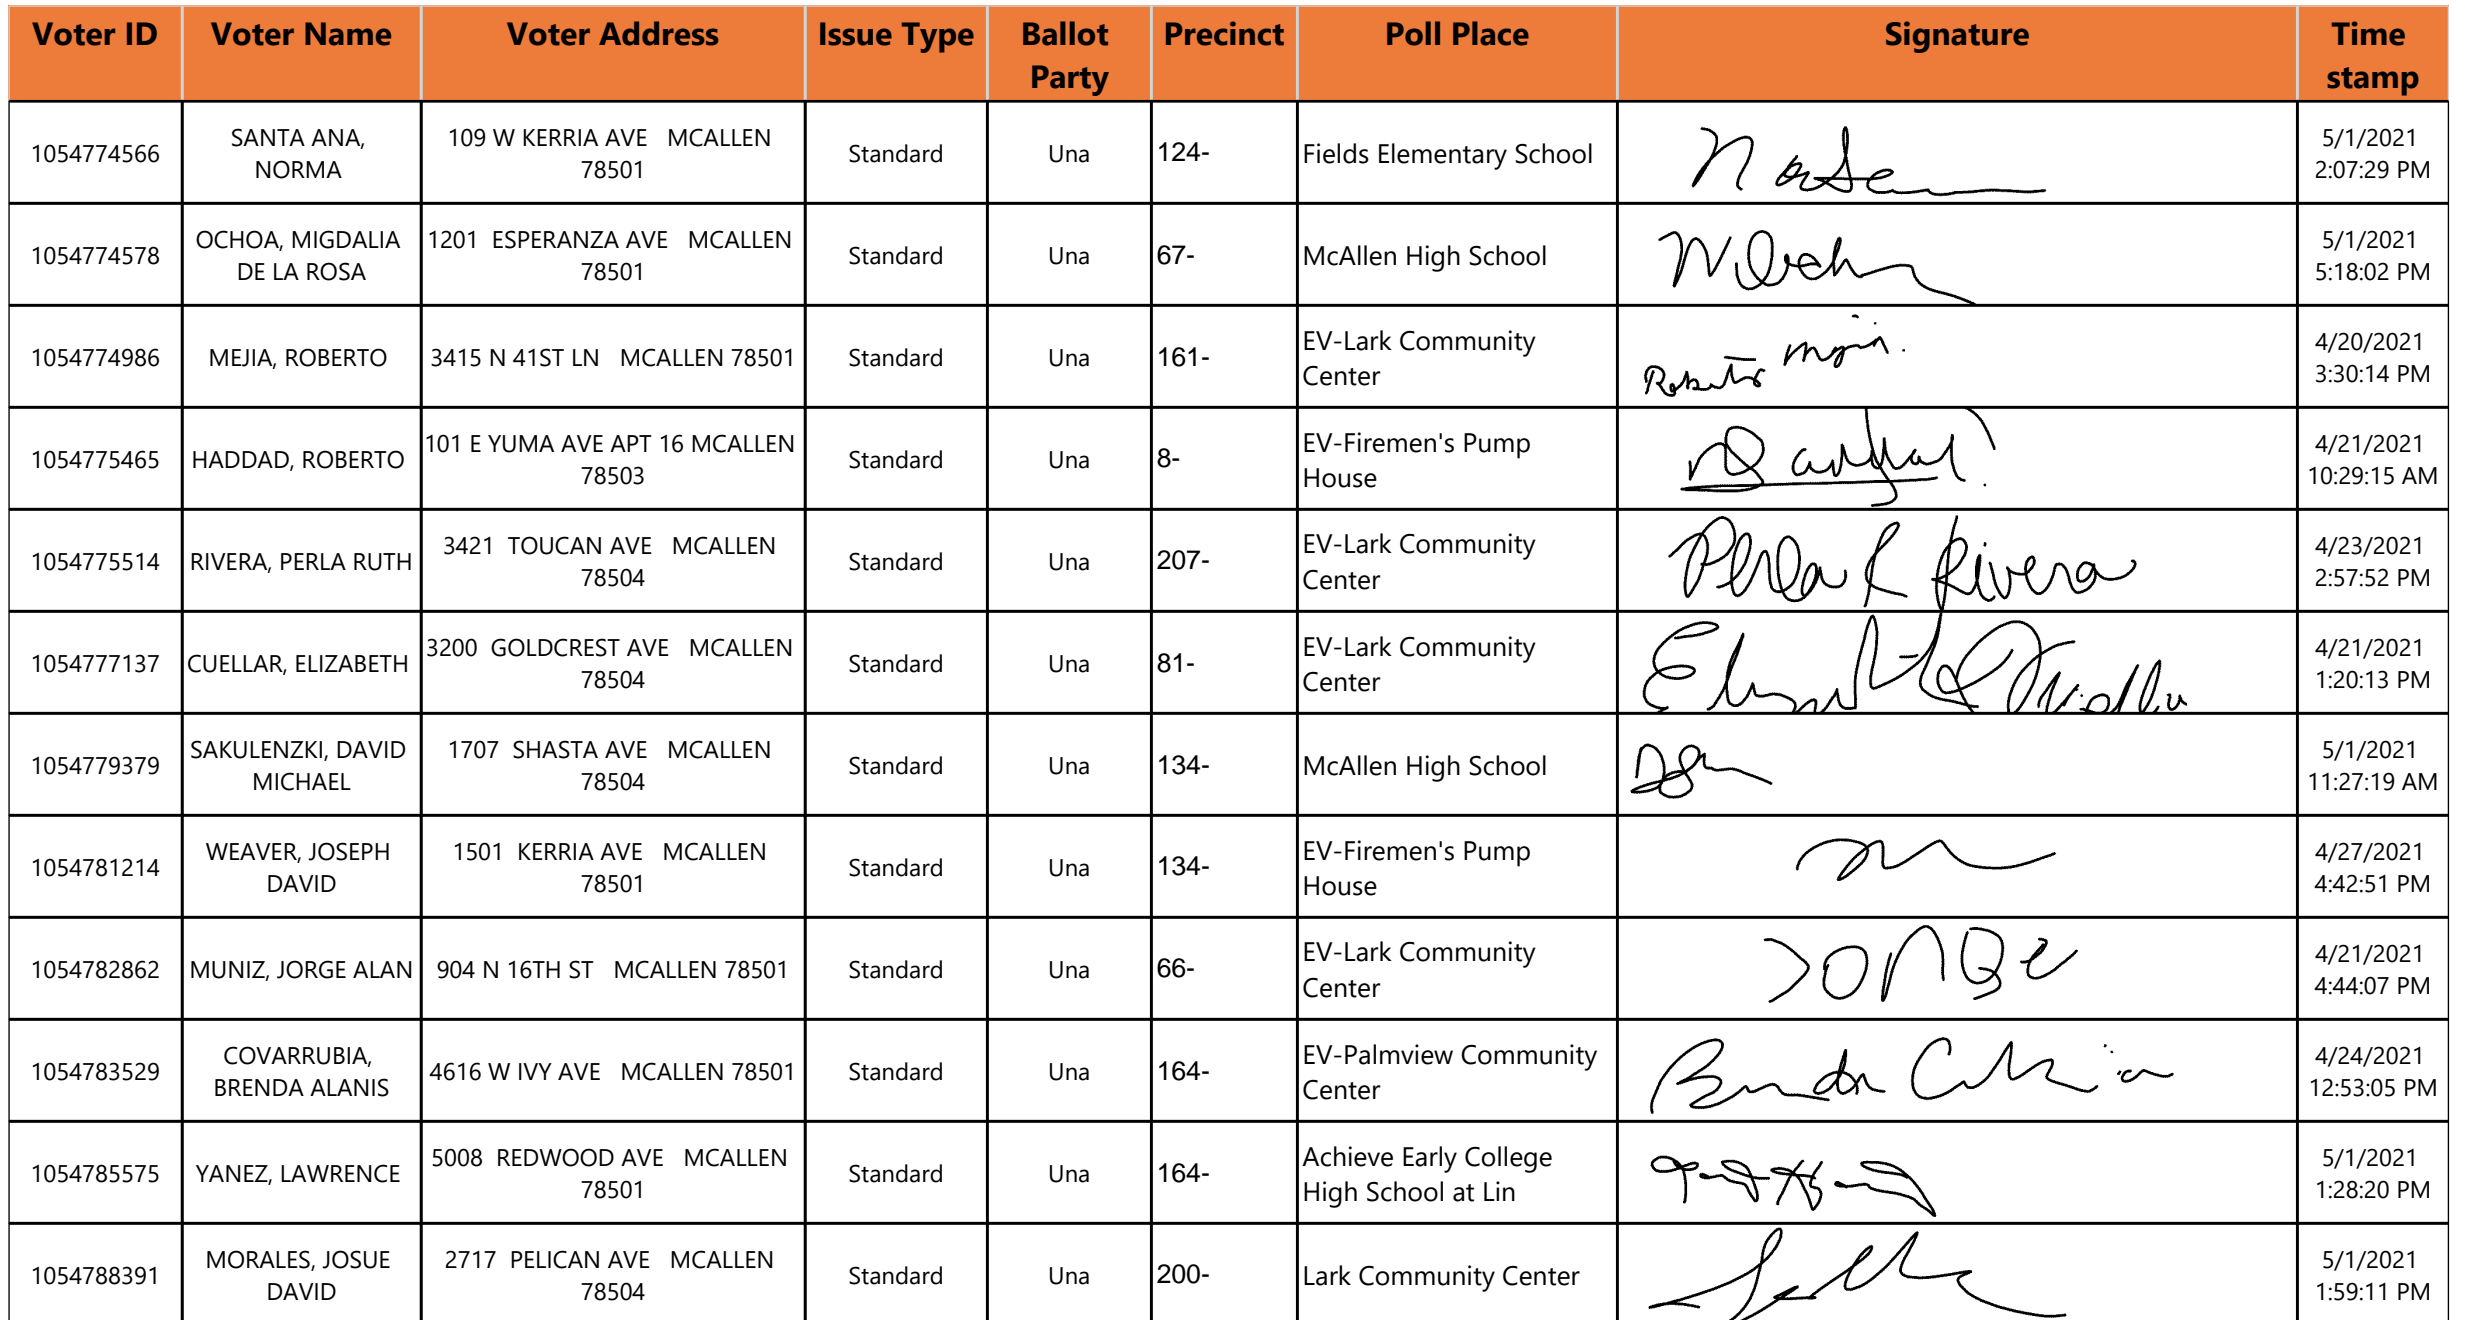 Voter ID Voter Name Voter Address Issue Type Ballot Party Precinct Poll Place Signature Time stamp
1054774566 SANTA ANA, NORMA 109 W KERRIA AVE MCALLEN 78501 Standard Una 124- Fields Elementary School 5/1/2021 2:07:29 PM
1054774578 OCHOA, MIGDALIA DE LA ROSA 1201 ESPERANZA AVE MCALLEN 78501 Standard Una 67- McAllen High School 5/1/2021 5:18:02 PM
1054774986 MEJIA, ROBERTO 3415 N 41ST LN MCALLEN 78501 Standard Una 161- EV-Lark Community Center Roberto Mejia 4/20/2021 3:30:14 PM
1054775465 HADDAD, ROBERTO 101 E YUMA AVE APT 16 MCALLEN 78503 Standard Una 8- EV-Firemen's Pump House 4/21/2021 10:29:15 AM
1054775514 RIVERA, PERLA RUTH 3421 TOUCAN AVE MCALLEN 78504 Standard Una 207- EV-Lark Community Center Perla R Rivera 4/23/2021 2:57:52 PM
1054777137 CUELLAR, ELIZABETH 3200 GOLDCREST AVE MCALLEN 78504 Standard Una 81- EV-Lark Community Center 4/21/2021 1:20:13 PM
1054779379 SAKULENZKI, DAVID MICHAEL 1707 SHASTA AVE MCALLEN 78504 Standard Una 134- McAllen High School 5/1/2021 11:27:19 AM
1054781214 WEAVER, JOSEPH DAVID 1501 KERRIA AVE MCALLEN 78501 Standard Una 134- EV-Firemen's Pump House 4/27/2021 4:42:51 PM
1054782862 MUNIZ, JORGE ALAN 904 N 16TH ST MCALLEN 78501 Standard Una 66- EV-Lark Community Center JORGE 4/21/2021 4:44:07 PM
1054783529 COVARRUBIA, BRENDA ALANIS 4616 W IVY AVE MCALLEN 78501 Standard Una 164- EV-Palmview Community Center 4/24/2021 12:53:05 PM
1054785575 YANEZ, LAWRENCE 5008 REDWOOD AVE MCALLEN 78501 Standard Una 164- Achieve Early College High School at Lin 5/1/2021 1:28:20 PM
1054788391 MORALES, JOSUE DAVID 2717 PELICAN AVE MCALLEN 78504 Standard Una 200- Lark Community Center 5/1/2021 1:59:11 PM